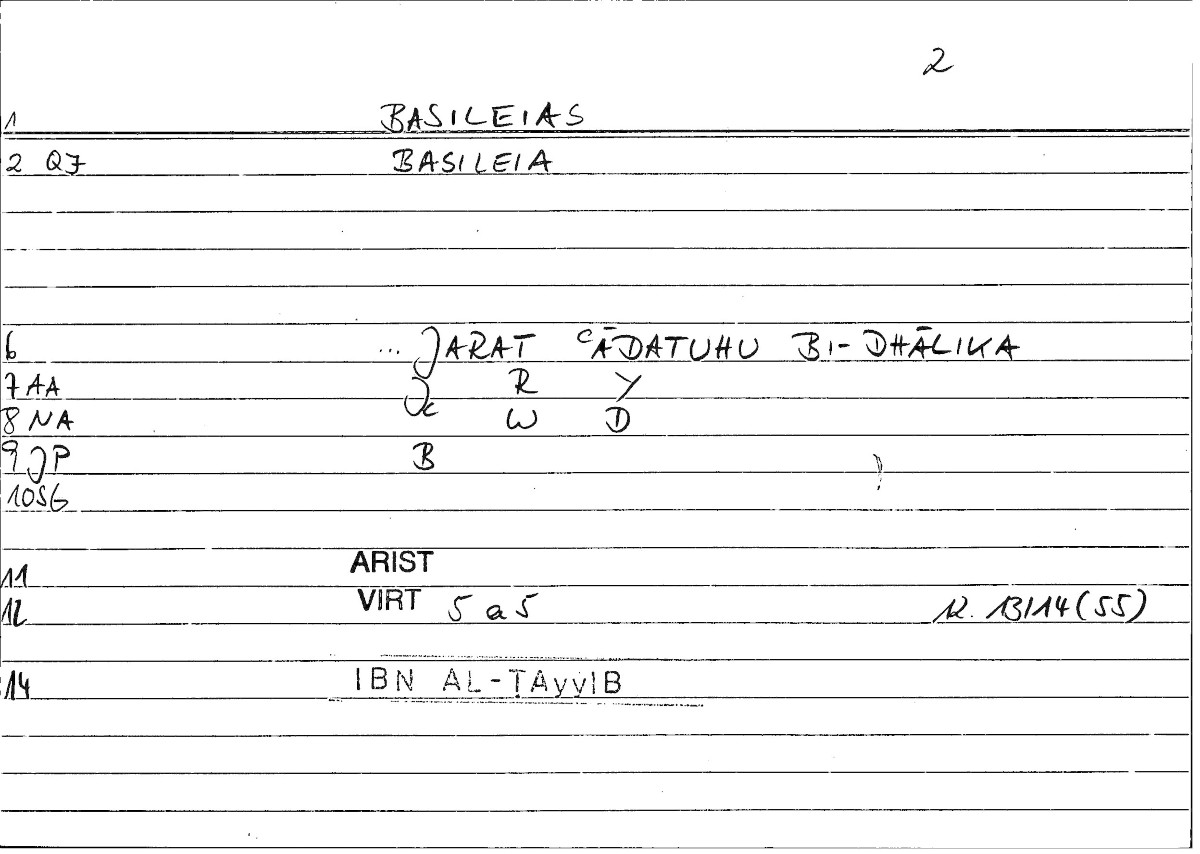 2
1 BASILEIAS
2 QF BASILEIA
6 ... JARAT ʿĀDATUHU BI-DHĀLIKA
7 AA Jc R Y
8 NA W D
9 JP B
10SG
11 ARIST
12 VIRT 5 a 5 12. 13/14 (55)
14 IBN AL-ṬAyyIB